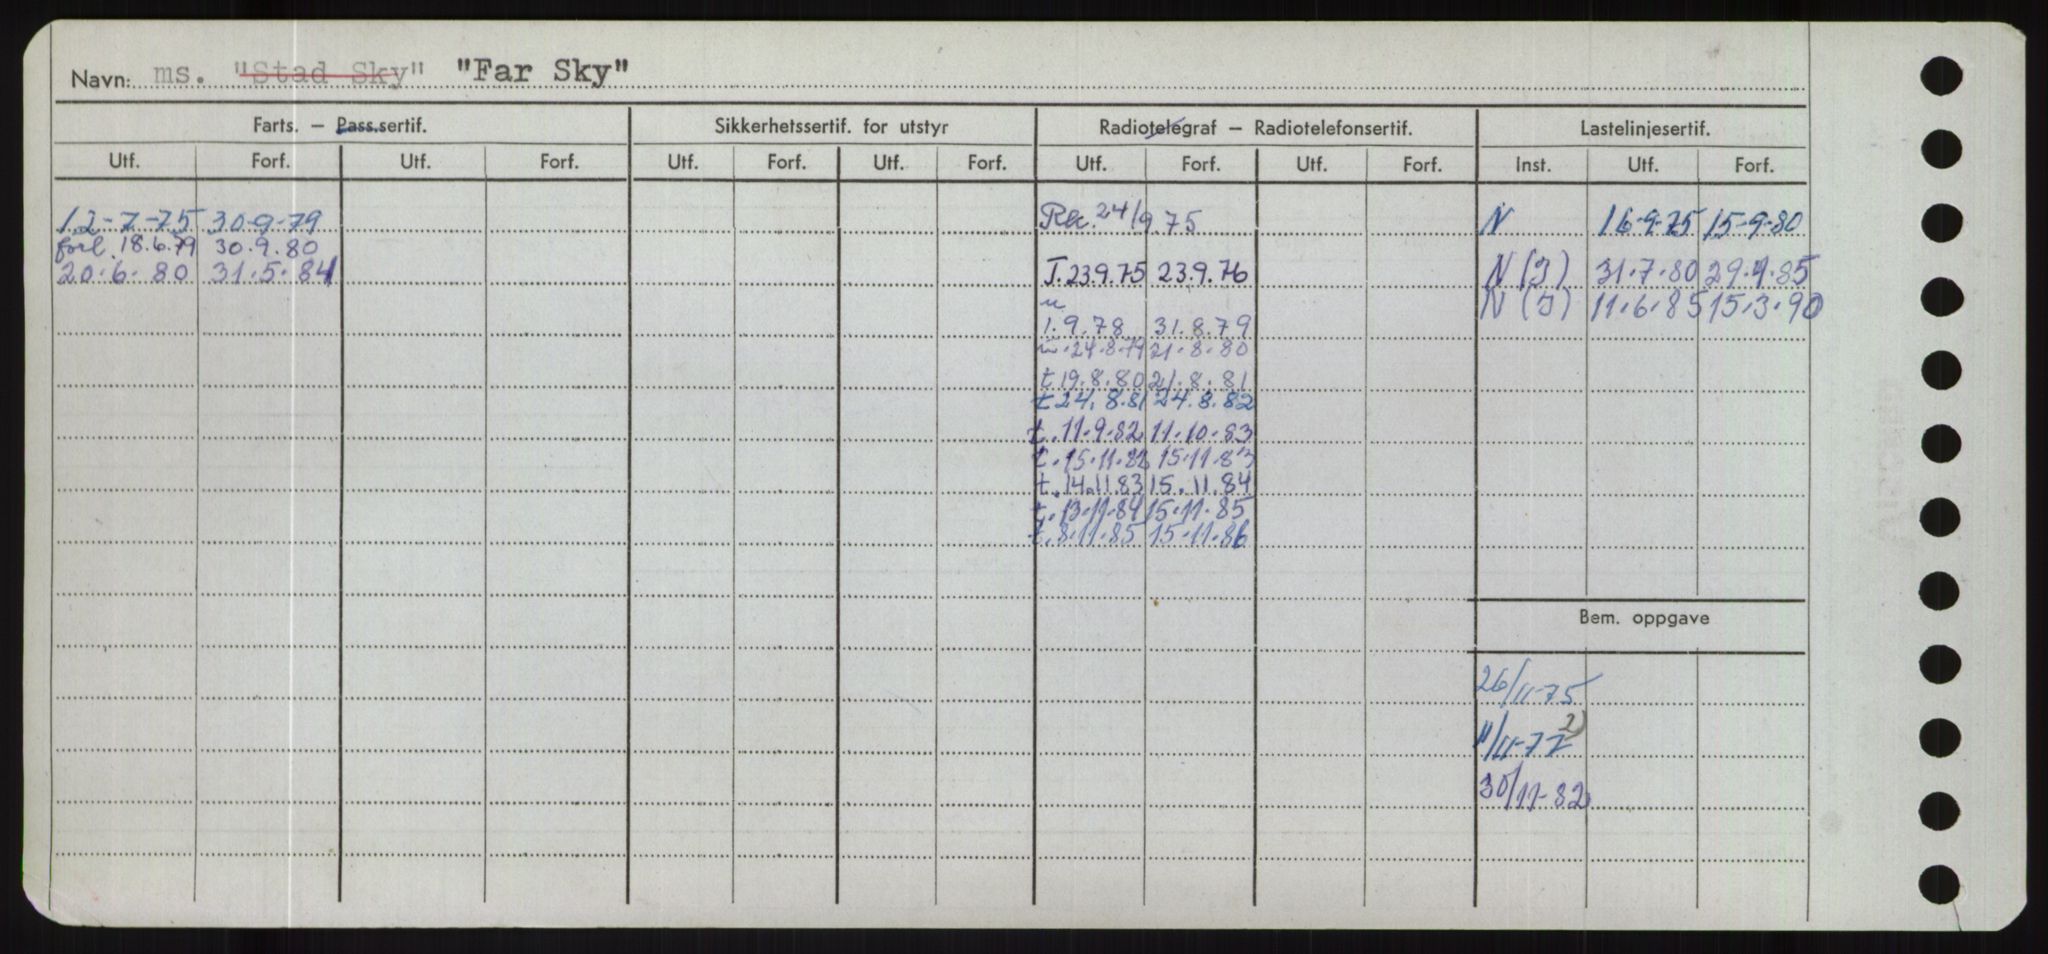 Navn: ms. "Stad Sky" "Far Sky"
Farts. – Pass.sertif. Sikkerhetssertif. for utstyr Radiotelegraf – Radiotelefonsertif. Lastelinjesertif.
Utf. Forf. Utf. Forf. Utf. Forf. Utf. Forf. Utf. Forf. Utf. Forf. Inst. Utf. Forf.
12-7-75 30-9-79 24/9 75 N 16-9-75 15-9-80
forl. 18.6.79 30.9.80
20.6.80 31.5.84 T.23.9.75 23.9.76 N (J) 31.7.80 29.4.85
N (J) 11.6.85 15.3.90
1.9.78 31.8.79
24.8.79 21.8.80
t 19.8.80 21.8.81
t 24.8.81 24.8.82
t. 11.9.82 11.10.83
t. 15.11.82 15.11.83
t. 14.11.83 15.11.84
t. 13.11.84 15.11.85
t. 8.11.85 15.11.86
Bem. oppgave
26/11-75
11/11-77 2)
30/11-82